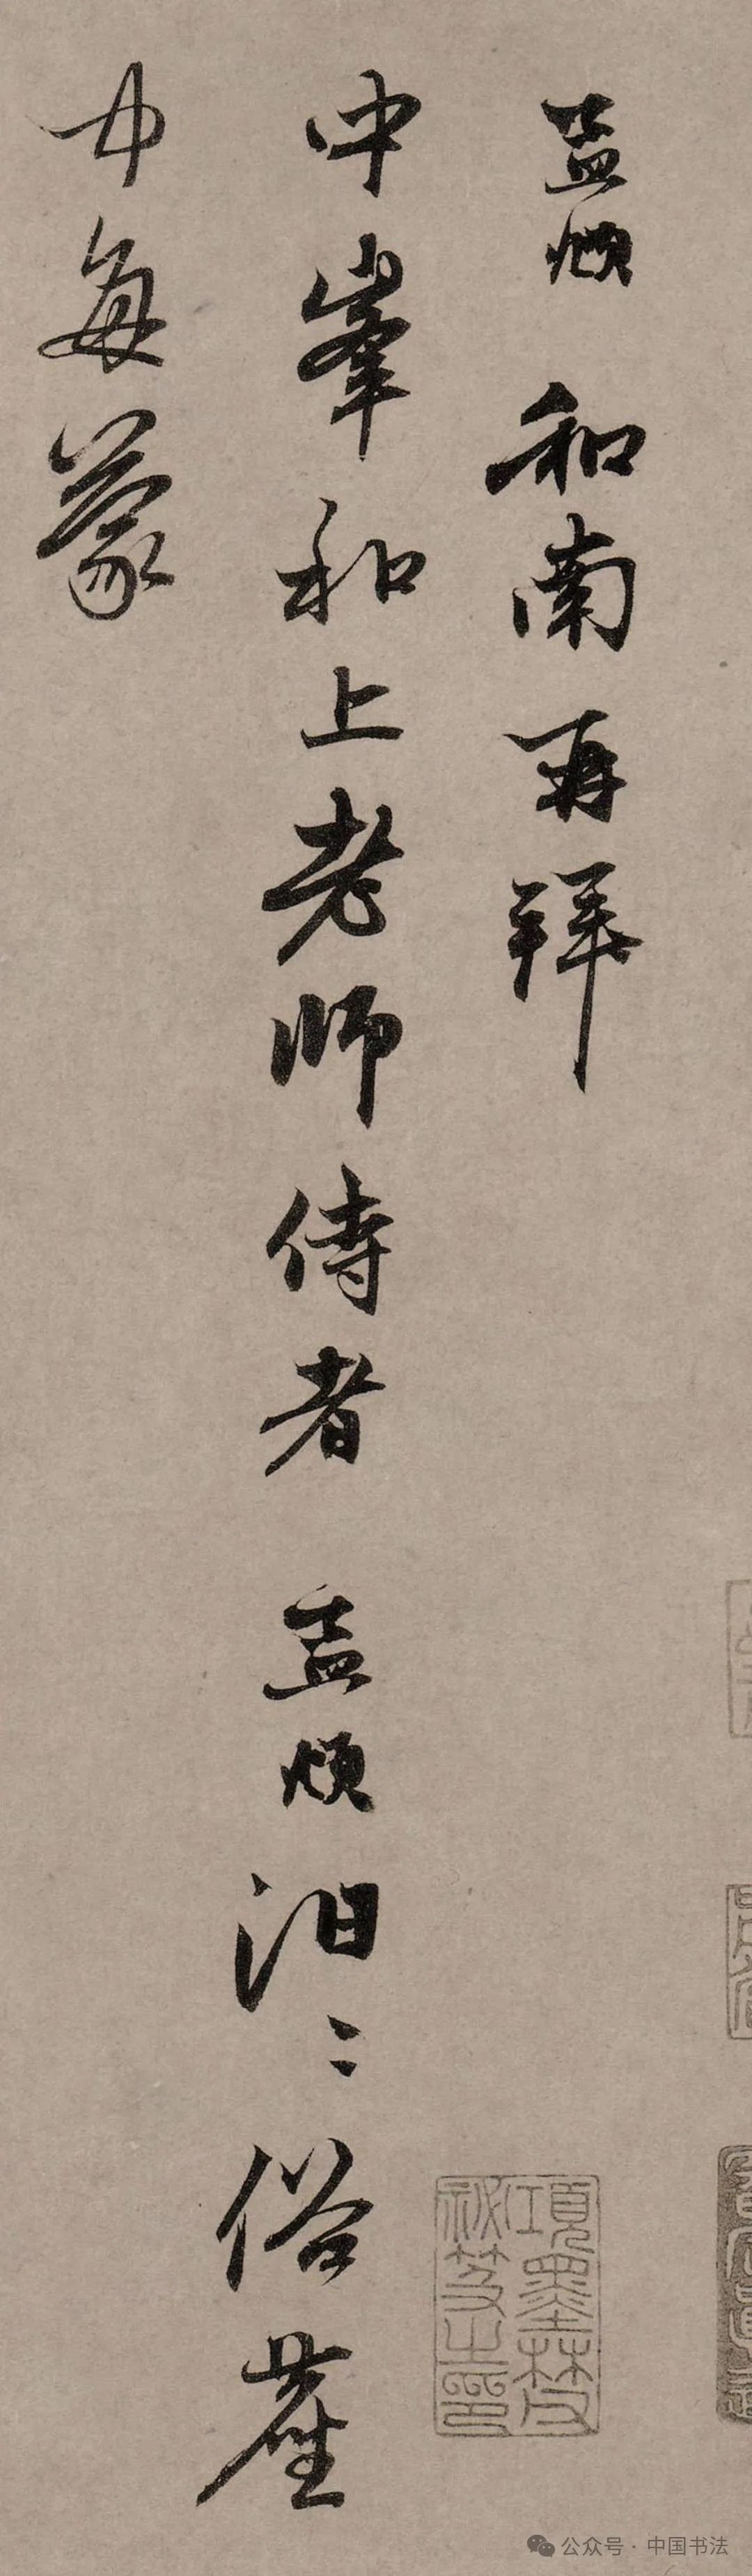 孟頫 和南再拜
中峯和上老師侍者 孟頫汩〻俗塵
中每蒙
項墨林父
祕笈之印
公众号 · 中国书法